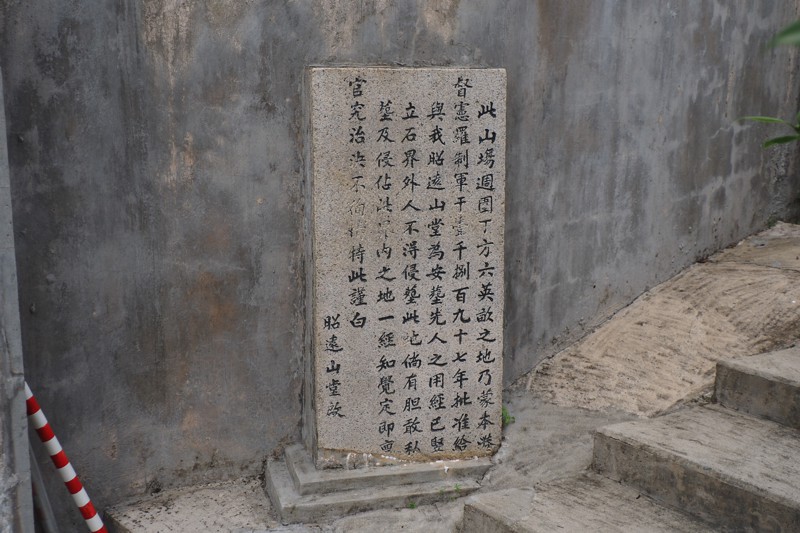 此山塲週圍丁方六英畝之地乃蒙本港
督憲羅制軍于壹千捌百九十七年批准給
與我昭遠山堂為安塟先人之用經已竪
立石界外人不得侵塟此地倘有胆敢私
塟及侵佔此內之地一經知覺定即稟
官究治决不徇特此謹白
昭遠山堂啟